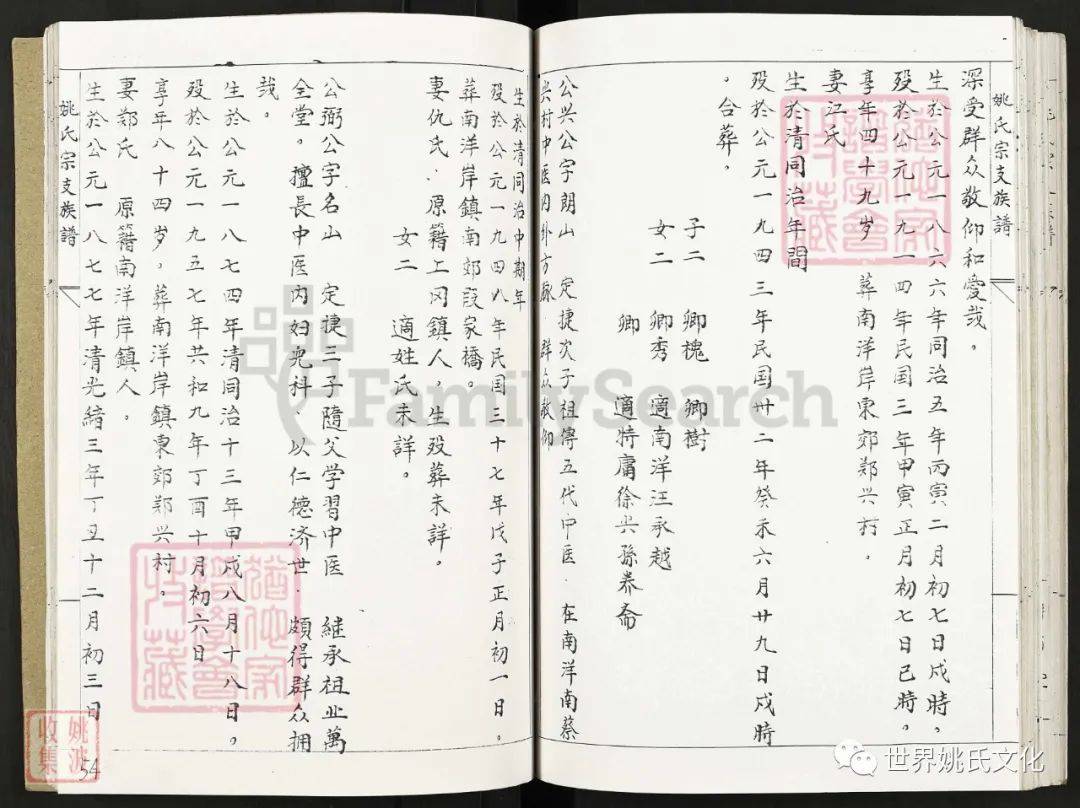 姚氏宗支族譜
深受群众敬仰和爱哉。
生於公元一八六六年同治五年丙寅二月初七日戍時。
殁於公元一九一四年民国三年甲寅正月初七日已時。
享年四十九岁 葬南洋岸東郊郑兴村。
妻江氏
生於清同治年間
殁於公元一九四三年民国卅二年癸未六月廿九日戍時
。合葬。
子二 卿槐 卿樹
女二 卿秀 適南洋汪承越
卿 適特庸徐兴孫养斋
公兴公字朗山 定捷次子祖傳五代中医.在南洋南蔡
兴村中医内外方脉 群众敬仰
生於清同治中期年
殁於公元一九四八年民国三十七年戊子正月初一日。
葬南洋岸鎮南郊段家橋。
妻仇氏、原籍上冈鎮人。生殁葬未詳。
女二 適姓氏未詳。
公弼公字名山 定捷三子隨父学習中医 継承祖业萬
全堂。擅長中医内妇兒科、以仁德济世.頗得群众拥
哉。
生於公元一八七四年清同治十三年甲戍八月十八日。
殁於公元一九五七年共和九年丁酉十月初六日
享年八十四岁。葬南洋岸鎮東郊郑兴村。
妻郑氏 原籍南洋岸鎮人.
生於公元一八七七年清光緒三年丁丑十二月初三日
姚氏宗支族譜
54
姚波
收集
FamilySearch
世界姚氏文化